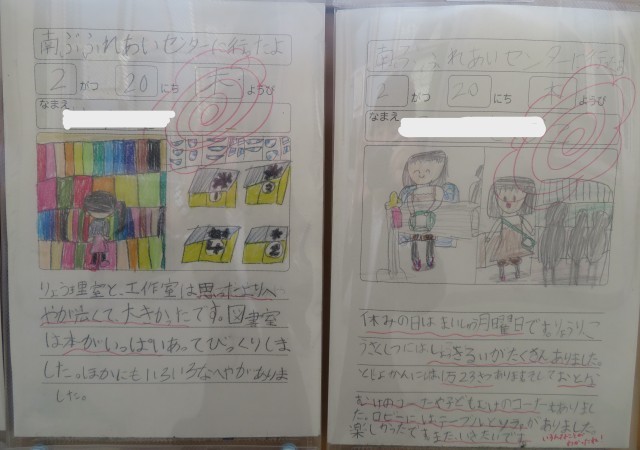 南ぶふれあいセンターに行たよ
2 がつ 20 にち 木 ようび
なまえ
りょう理室と、工作室は思ったよりへ
やが広くて、大きかたです。図書室
は本がいっぱいあってびっくりしま
した。ほかにもいろいろなへやがありま
した。
南ぶふれあいセンターに行
2 がつ 20 にち 木 ようび
なまえ
休みの日はまいしゅう月曜日です。りょうり
うさくしつにはしょっきるいがたくさんありました。
としょかんには1万23さつあります。そしておとな
むけのコーナーや子どもむけのコーナーもありまし
た。ロビーにはテーブルと がありました。
楽しかったです。またいきたいです。